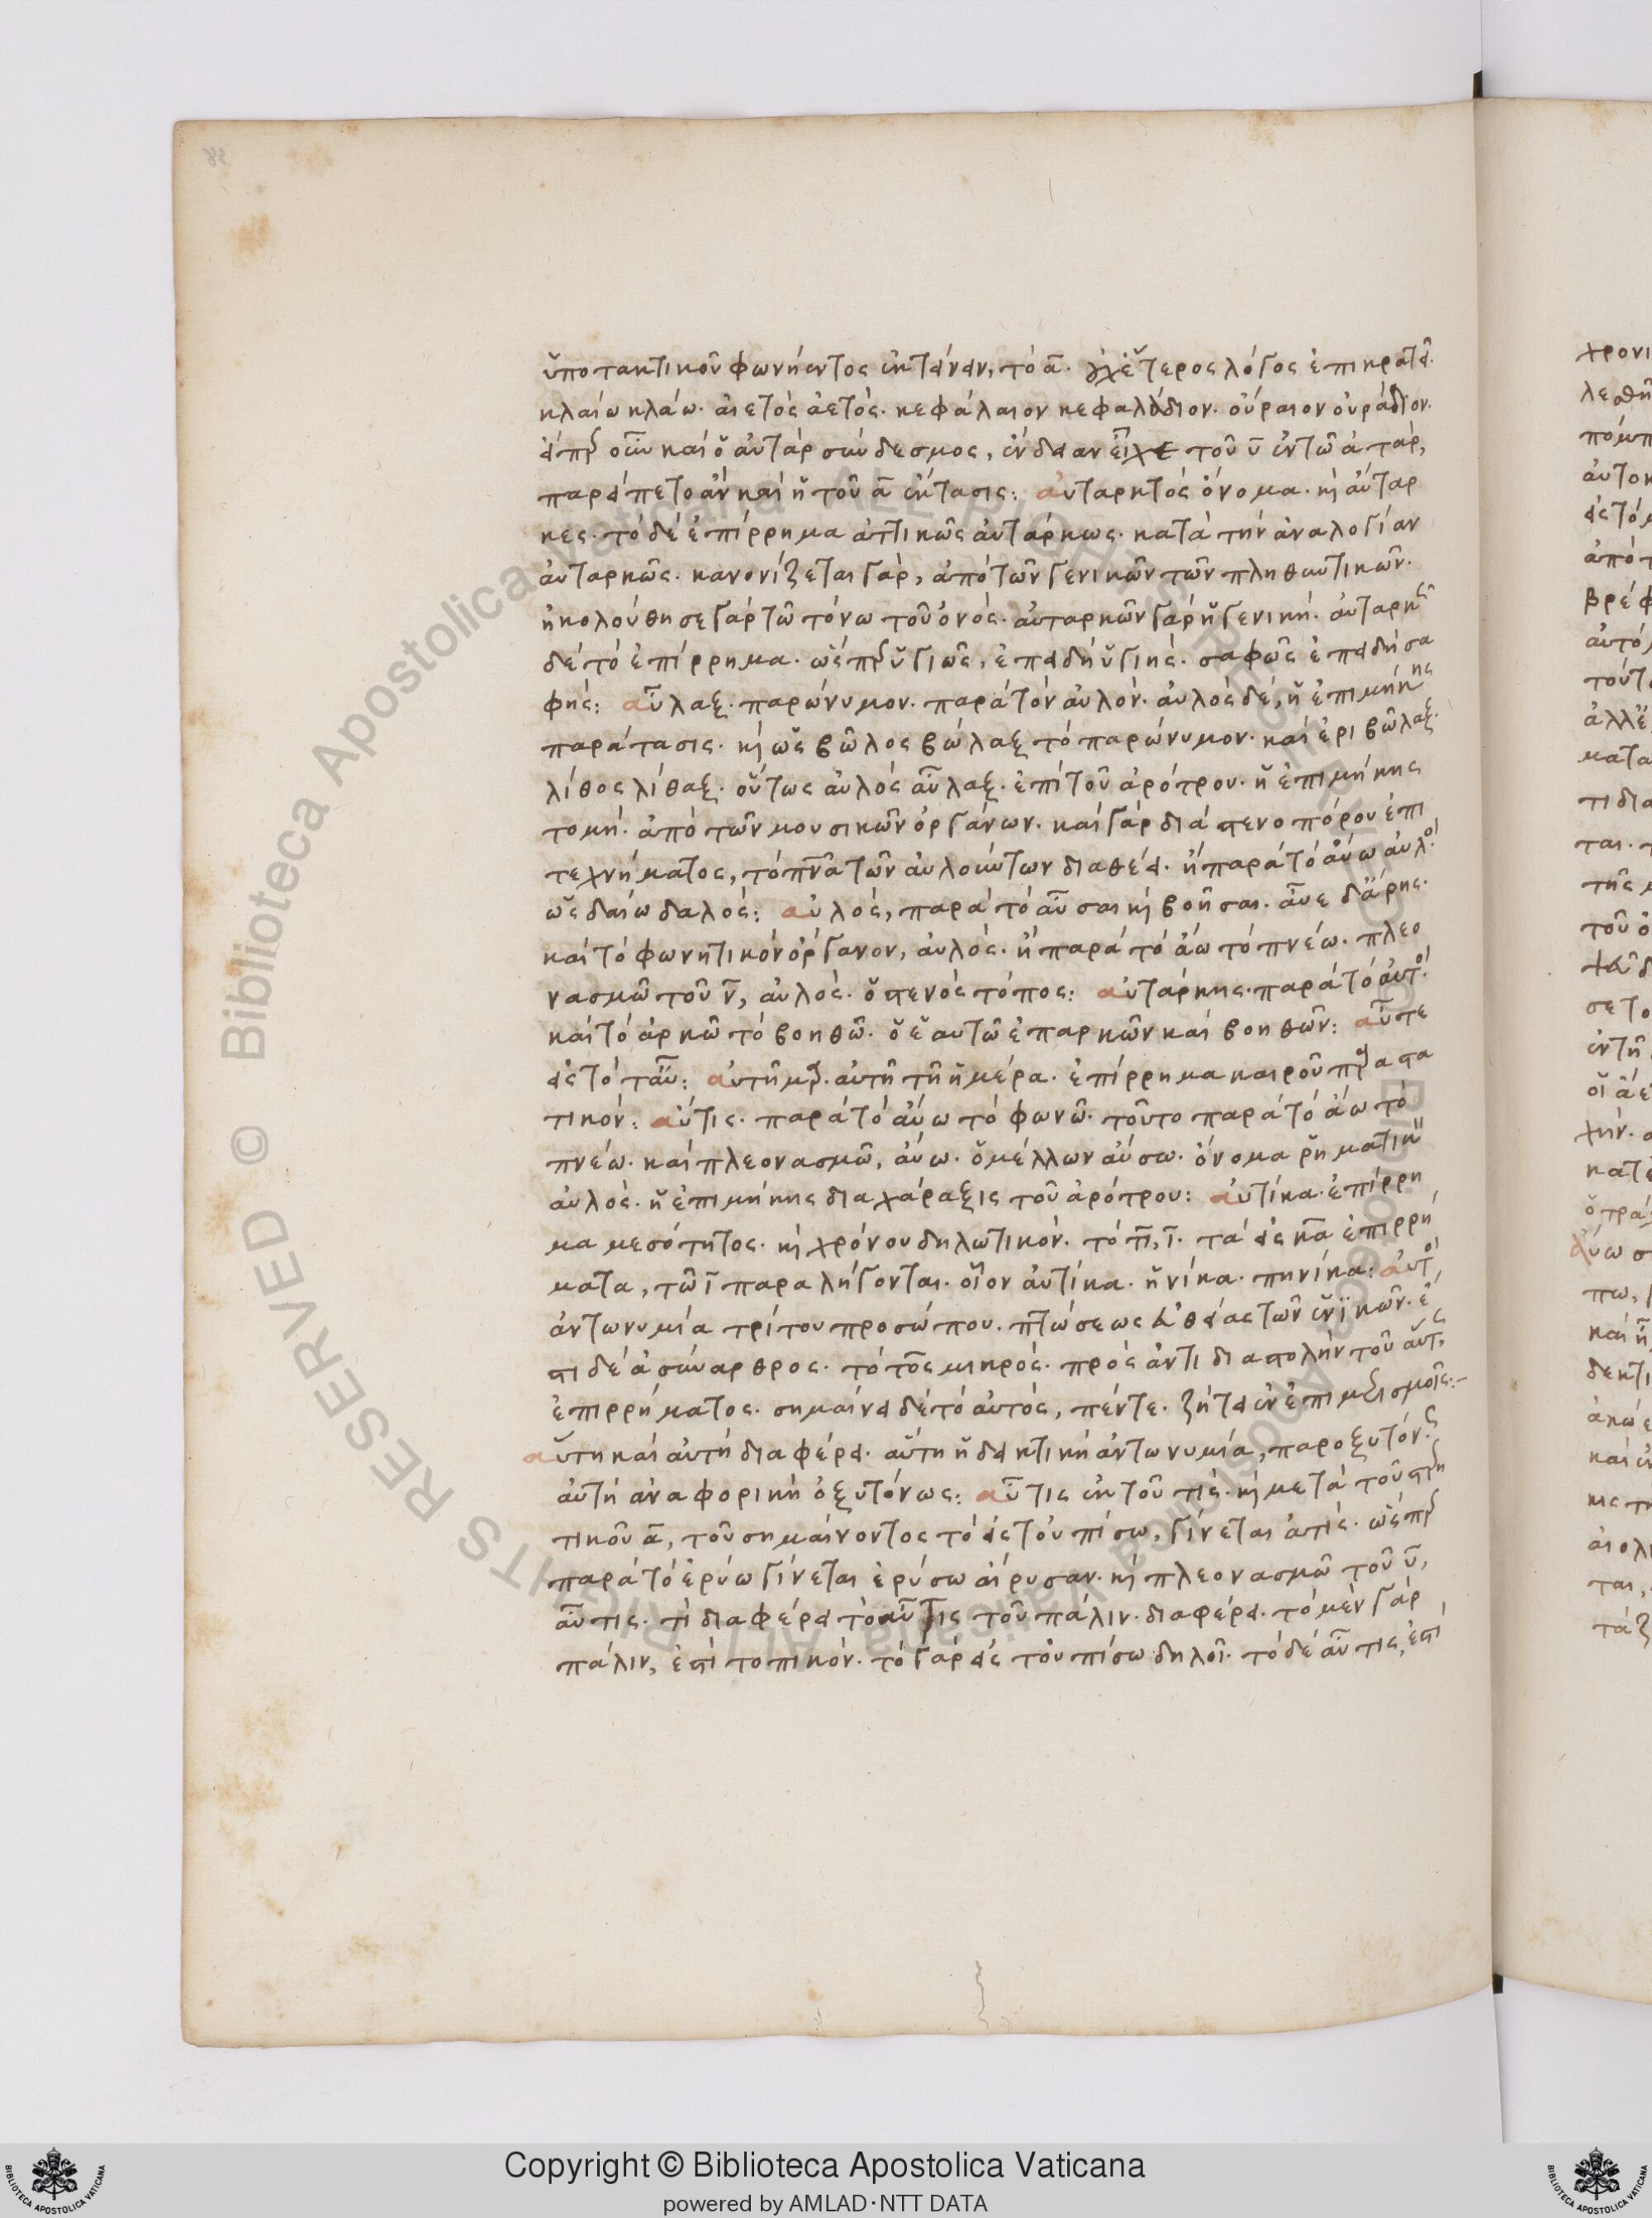 ὑποτακτικοῦ φωνήεντος ἐκτείνειν, τὸ α. οὐχ ἕτερος λόγος ἐπικρατεῖ.
κλαίω κλάω. αἰετὸς ἀετός. κεφάλαιον κεφαλάδιον. οὐραῖον οὐράδιον.
εἴπερ οὖν καὶ ὁ αὐτὰρ σύνδεσμος, ἔνδειαν εἶχε τοῦ υ ἐν τῷ ἀτάρ,
παρείπετο ἂν καὶ ἡ τοῦ α ἔκτασις: αὐταρκτὸς ὄνομα. καὶ αὔταρ
κες. τὸ δὲ ἐπίρρημα ἀττικῶς αὐτάρκως. κατὰ τὴν ἀναλογίαν
αὐταρκῶς. κανονίζεται γάρ, ἀπὸ τῶν γενικῶν τῶν πληθυντικῶν.
ἠκολούθησε γὰρ τῷ τόνω τοῦ ὀνός. αὐταρκῶν γὰρ ἡ γενική. αὐταρκῶς
δὲ τὸ ἐπίρρημα. ὥσπερ ὑγιῶς, ἐπειδὴ ὑγιής. σαφῶς ἐπειδὴ σα
φής: αὖλαξ. παρώνυμον. παρὰ τὸν αὐλόν. αὐλὸς δὲ, ἡ ἐπιμήκης
παράτασις. καὶ ὡς βῶλος βώλαξ τὸ παρώνυμον. καὶ ἐριβῶλαξ.
λίθος λίθαξ. οὕτως αὐλὸς αὖλαξ. ἐπὶ τοῦ ἀρότρου. ἡ ἐπιμήκης
τομή. ἀπὸ τῶν μουσικῶν ὀργάνων. καὶ γὰρ διὰ στενοπόρου ἐπι
τεχνήματος, τὸ πνα τῶν αὐλούντων διαθέει. ἢ παρὰ τὸ αὔω αὐλός.
ὡς δαίω δαλός: αὐλός, παρὰ τὸ αὖσαι καὶ βοῆσαι. αὖε δ' ἄρης.
καὶ τὸ φωνητικὸν ὄργανον, αὐλός. ἢ παρὰ τὸ ἄω τὸ πνέω. πλεο
νασμῷ τοῦ υ, αὐλός. ὁ στενὸς τόπος: αὐτάρκης. παρὰ τὸ αὐτός.
καὶ τὸ ἀρκῶ τὸ βοηθῶ. ὁ ἑαυτῷ ἐπαρκῶν καὶ βοηθῶν: αὖτε
εἰς τὸ ταῦ: αὐτῆμαρ. αὐτῇ τῇ ἡμέρα. ἐπίρρημα καιροῦ παραστα
τικόν: αὖτις. παρὰ τὸ αὔω τὸ φωνῶ. τοῦτο παρὰ τὸ ἄω τὸ
πνέω. καὶ πλεονασμῷ, αὔω. ὁ μέλλων αὔσω. ὄνομα ῥηματικὸν
αὐλός. ἡ ἐπιμήκης διαχάραξις τοῦ ἀρότρου: αὐτίκα. ἐπίρρη
μα μεσότητος. καὶ χρόνου δηλωτικόν. τὸ τι, ι. τὰ εἰς κα ἐπιρρή
ματα, τῷ ι παραλήγονται. οἷον αὐτίκα. ἡνίκα. πηνίκα: αὐτός
ἀντωνυμία τρίτου προσώπου. πτώσεως εὐθείας τῶν ἑνικῶν. ἔ
στι δὲ ἀσύναρθρος. τὸ τος μικρός. πρὸς ἀντιδιαστολὴν τοῦ αὕτως
ἐπιρρήματος. σημαίνει δὲ τὸ αὐτὸς, πέντε. ζήτει ἐν ἐπιμερισμοῖς:-
αὕτη καὶ αὐτὴ διαφέρει. αὕτη ἡ δεικτικὴ ἀντωνυμία, παροξυτόνως.
αὐτὴ ἀναφορικὴ ὀξυτόνως: αὖτις ἐκ τοῦ τίς. καὶ μετὰ τοῦ στερη
τικοῦ α, τοῦ σημαίνοντος τὸ εἰς τοὐπίσω, γίνεται ἀτίς. ὥσπερ
παρὰ τὸ ἐρύω γίνεται ἐρύσω αἴρυσαν. καὶ πλεονασμῷ τοῦ υ,
αὖτις. τί διαφέρει τὸ αὖτις τοῦ πάλιν. διαφέρει. τὸ μὲν γὰρ
πάλιν, ἐστὶ τοπικόν. τὸ γὰρ εἰς τοὐπίσω δηλοῖ. τὸ δὲ αὖτις, ἐστὶ
Copyright © Biblioteca Apostolica Vaticana
powered by AMLAD·NTT DATA